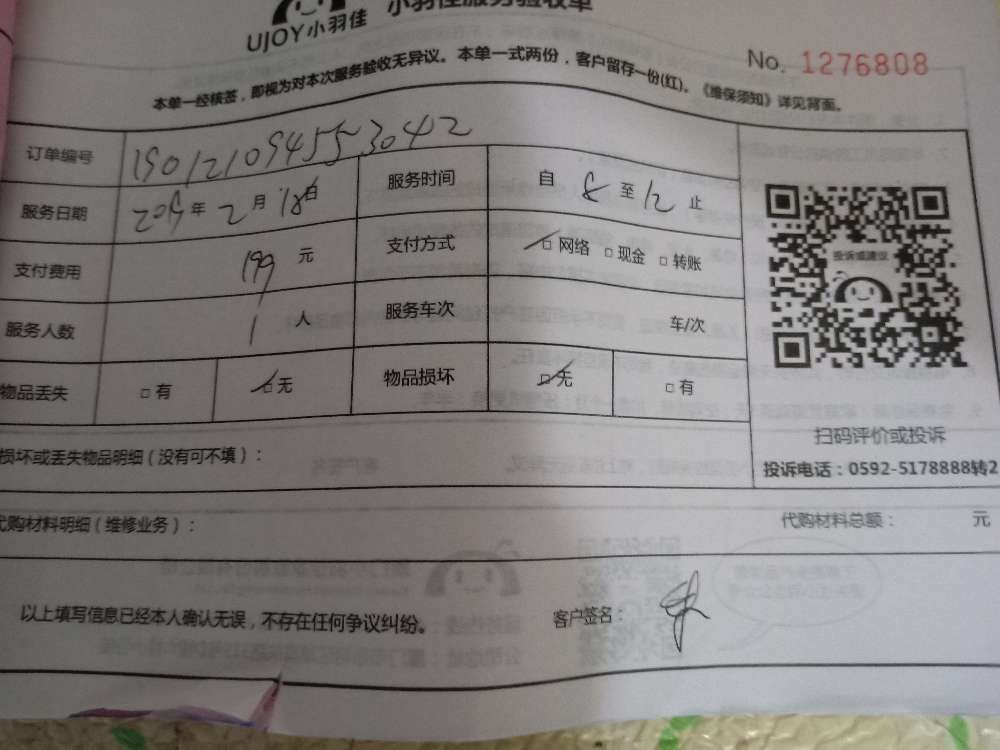 UJOY小羽佳 小羽佳服务验收单
No. 1276808
本单一经核签，即视为对本次服务验收无异议。本单一式两份，客户留存一份(红)。《维保须知》详见背面。
订单编号 190121094553042
服务日期 2019年 2月 18日 服务时间 自 8 至 12 止
支付费用 199 元 支付方式 □网络 □现金 □转账
服务人数 1 人 服务车次 车/次
物品丢失 □有 □无 物品损坏 □无 □有
投诉或建议
扫码评价或投诉
投诉电话：0592-5178888转2
损坏或丢失物品明细（没有可不填）：
代购材料明细（维修业务）： 代购材料总额： 元
以上填写信息已经本人确认无误，不存在任何争议纠纷。 客户签名：